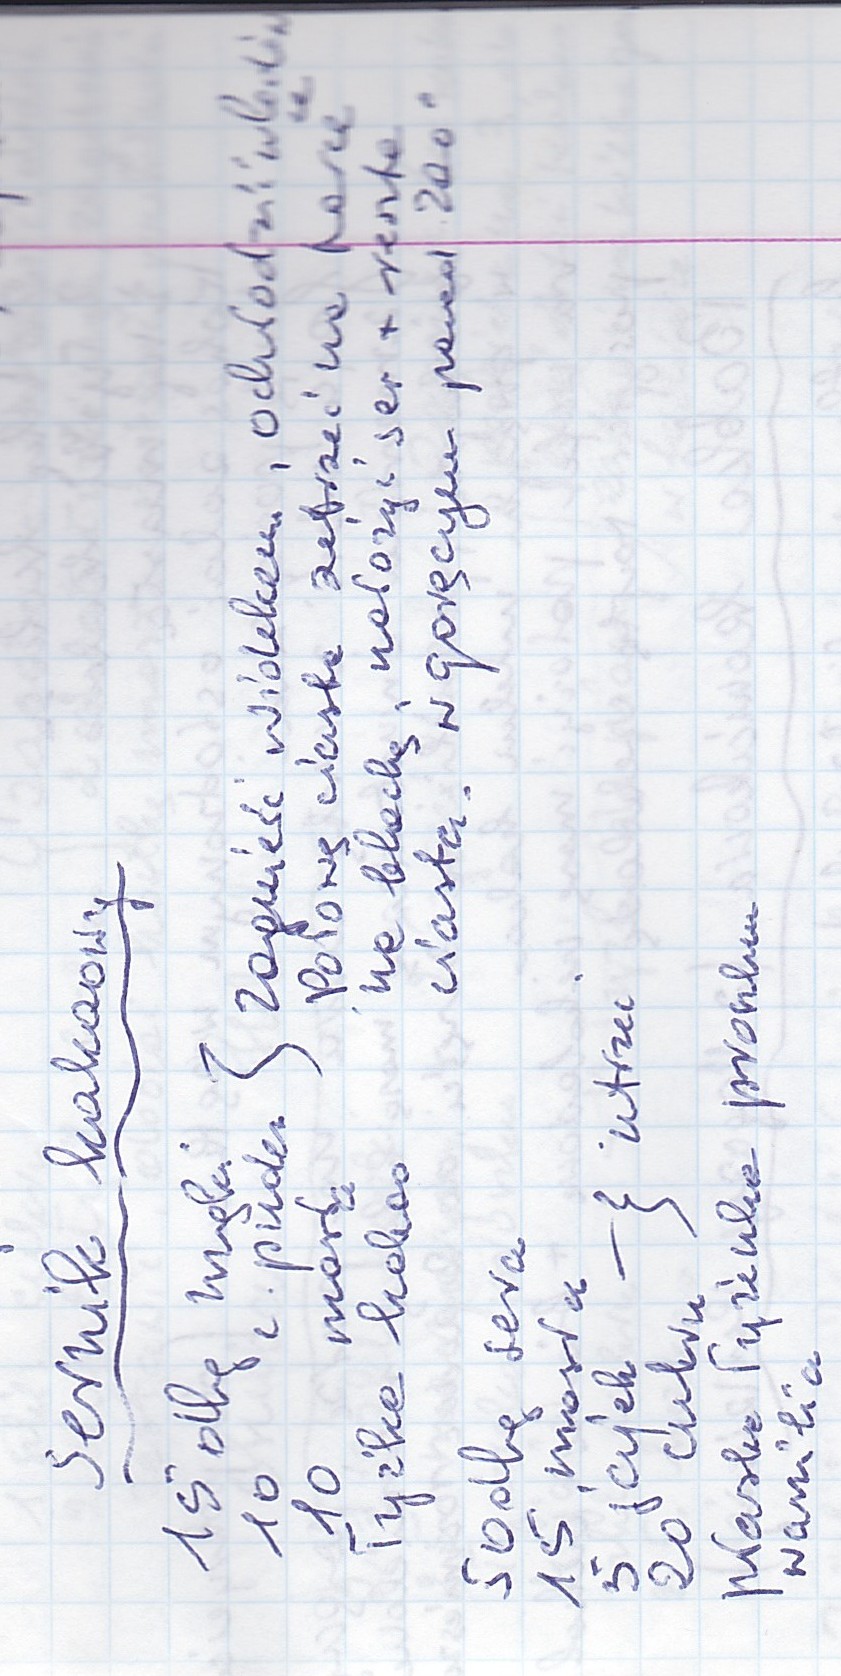 Sernik kakaowy
15 dkg mąki
10 c. puder
10 masła
łyżka kakao
zagnieść widelcem, ochłodzić w lodówce
Połowę ciasta zetrzeć na tarce
na blachę, nałożyć ser + reszta
ciasta. w gorącym 200°
50 dkg sera
15 masła
5 jajek — utrzeć
20 cukru
płaska łyżeczka proszku
wanilia